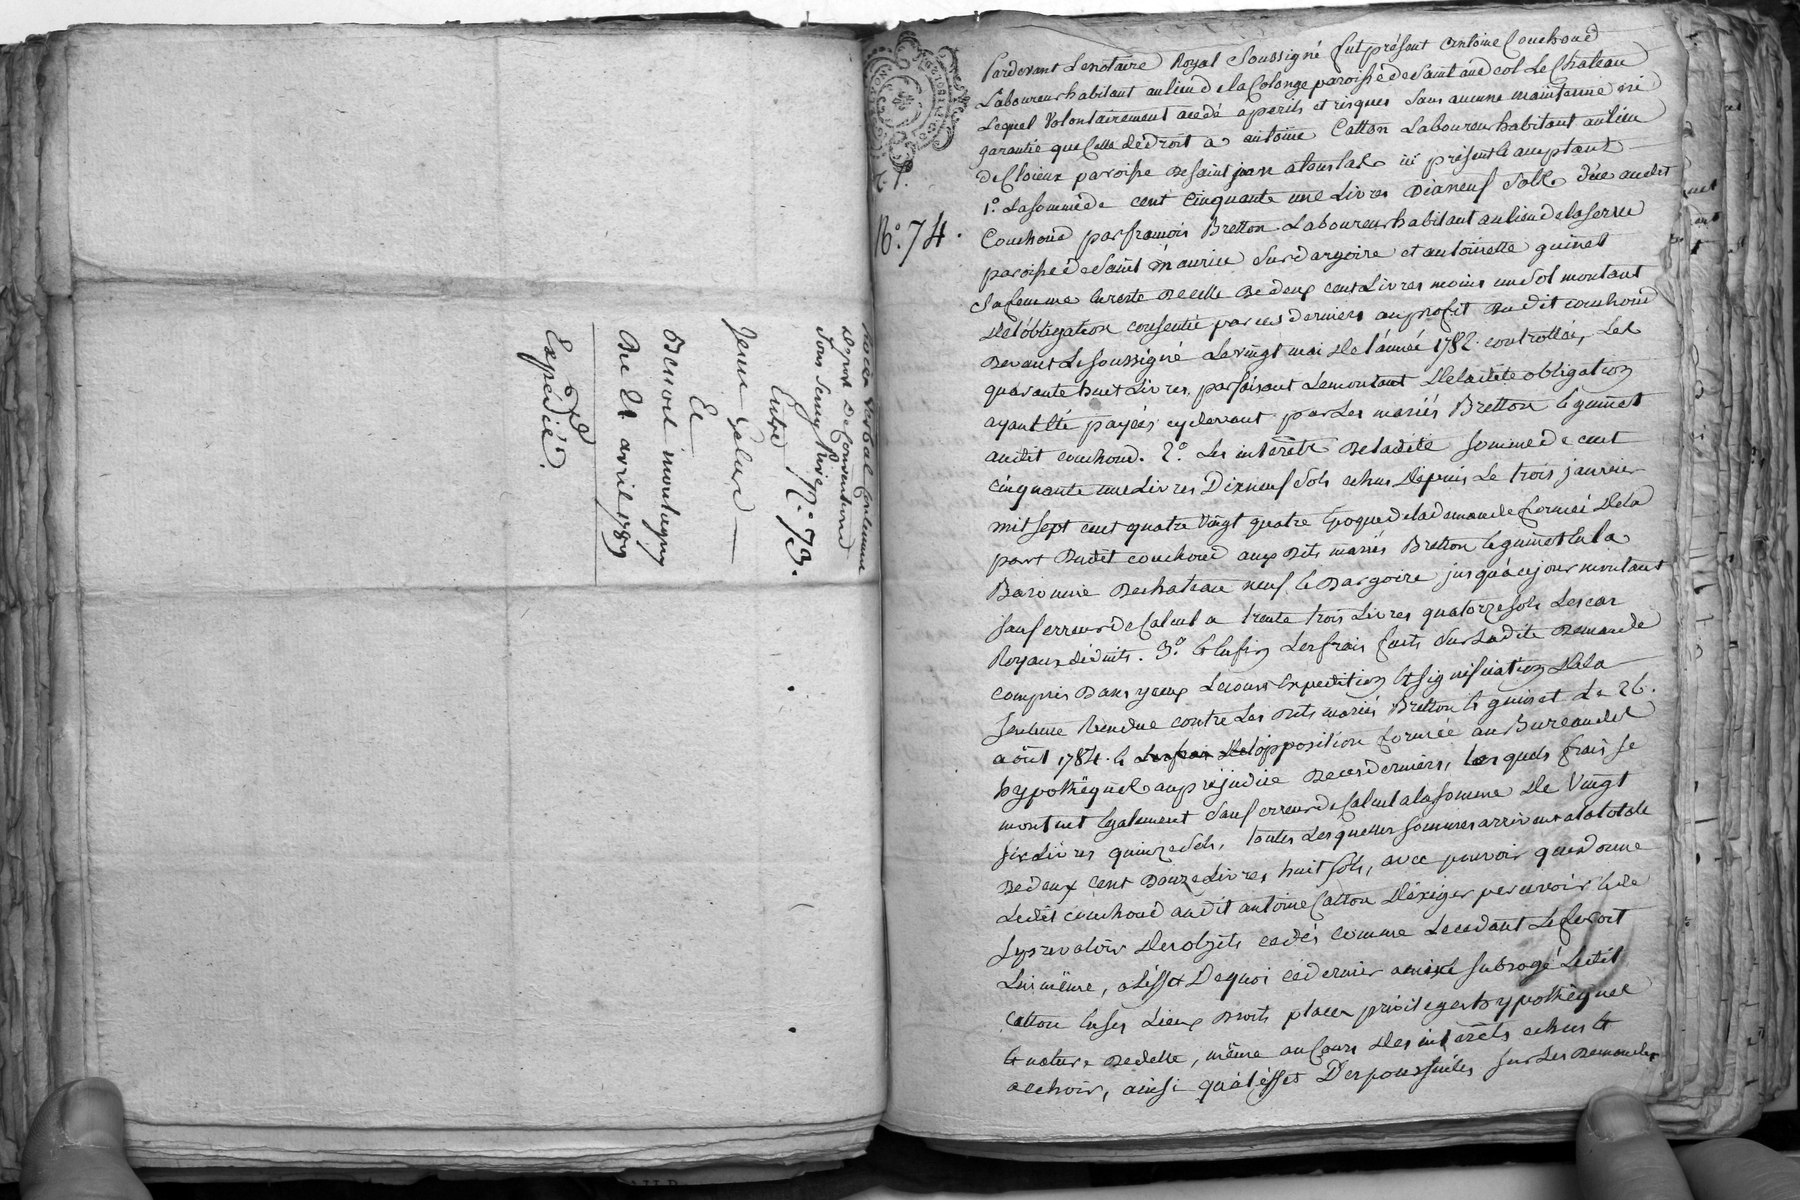 procès verbal contenant
dépot de convention
sous seing privé N.° 73.
Entre
Jeune
Et
Benoit montagny
Du 21 avril 1789
Expédié.
N.° 74.
Pardevant Le notaire Royal Soussigné fut présent Antoine Couchoud
Laboureur habitant au lieu de la Colonge paroisse de Saint andéol Le Chateau
Lequel Volontairement a cédé a perils et risques sans aucune maintenue ni
garantie que Celle de droit a antoine Catton Laboureur habitant au lieu
de paroisse de Saint jean a touslas ici présent & acceptant
1.° La somme de cent Cinquante une Livres Dix neuf Sols düe audit
Couchoud par françois Bretton Laboureur habitant au lieu de la
paroisse de Saint maurice sur dargoire et antoinette guinet
Sa femme & reste de celle de deux cent Livres moins un sol montant
de l'obligation consentie par ces derniers au profit dudit couchoud
devant Le soussigné Le vingt mai de l'année 1782. controllée, Les
quarante huit Livres parfaisant Le montant de ladite obligation
ayant été payées cydevant par Les mariés Bretton & guinet
audit couchoud. 2.° Les interêts de ladite somme de cent
cinquante une Livres Dix neuf Sols echus depuis Le trois janvier
mil sept cent quatre vingt quatre Epoque de la demande formée de la
part dudit couchoud aux dits mariés Bretton & guinet en la
Baronnie de chateau neuf & dargoire jusqu'à ce jour montant
sauf erreur de Calcul a trente trois Livres quatorze sols
Royaux déduits. 3.° & enfin Les frais faits sur Ladite demande
compris dans yceux Expedition & signification de la
sentence Rendue contre Les dits mariés Bretton & guinet Le 26.
août 1784. & de l'opposition formée au Bureau des
hypothèques au préjudice de ces derniers, Lesquels frais se
montent également sauf erreur de Calcul a la somme de Vingt
six Livres quinze sols, toutes Lesquelles sommes arrivent a la totale
de deux cent douze Livres huit sols, avec pouvoir que donne
Ledit couchoud audit antoine Catton d'éxiger percevoir & de
se prevaloir des objets cédés comme Le cédant Le feroit
Lui même, a L'effet de quoi ce dernier a mis & subrogé Ledit
Catton en ses Lieux droits places privileges hypothèques
& nature de dette, même au Cours des interêts echus &
a echoir, ainsi qu'a L'effet Des poursuites sur Les demandes